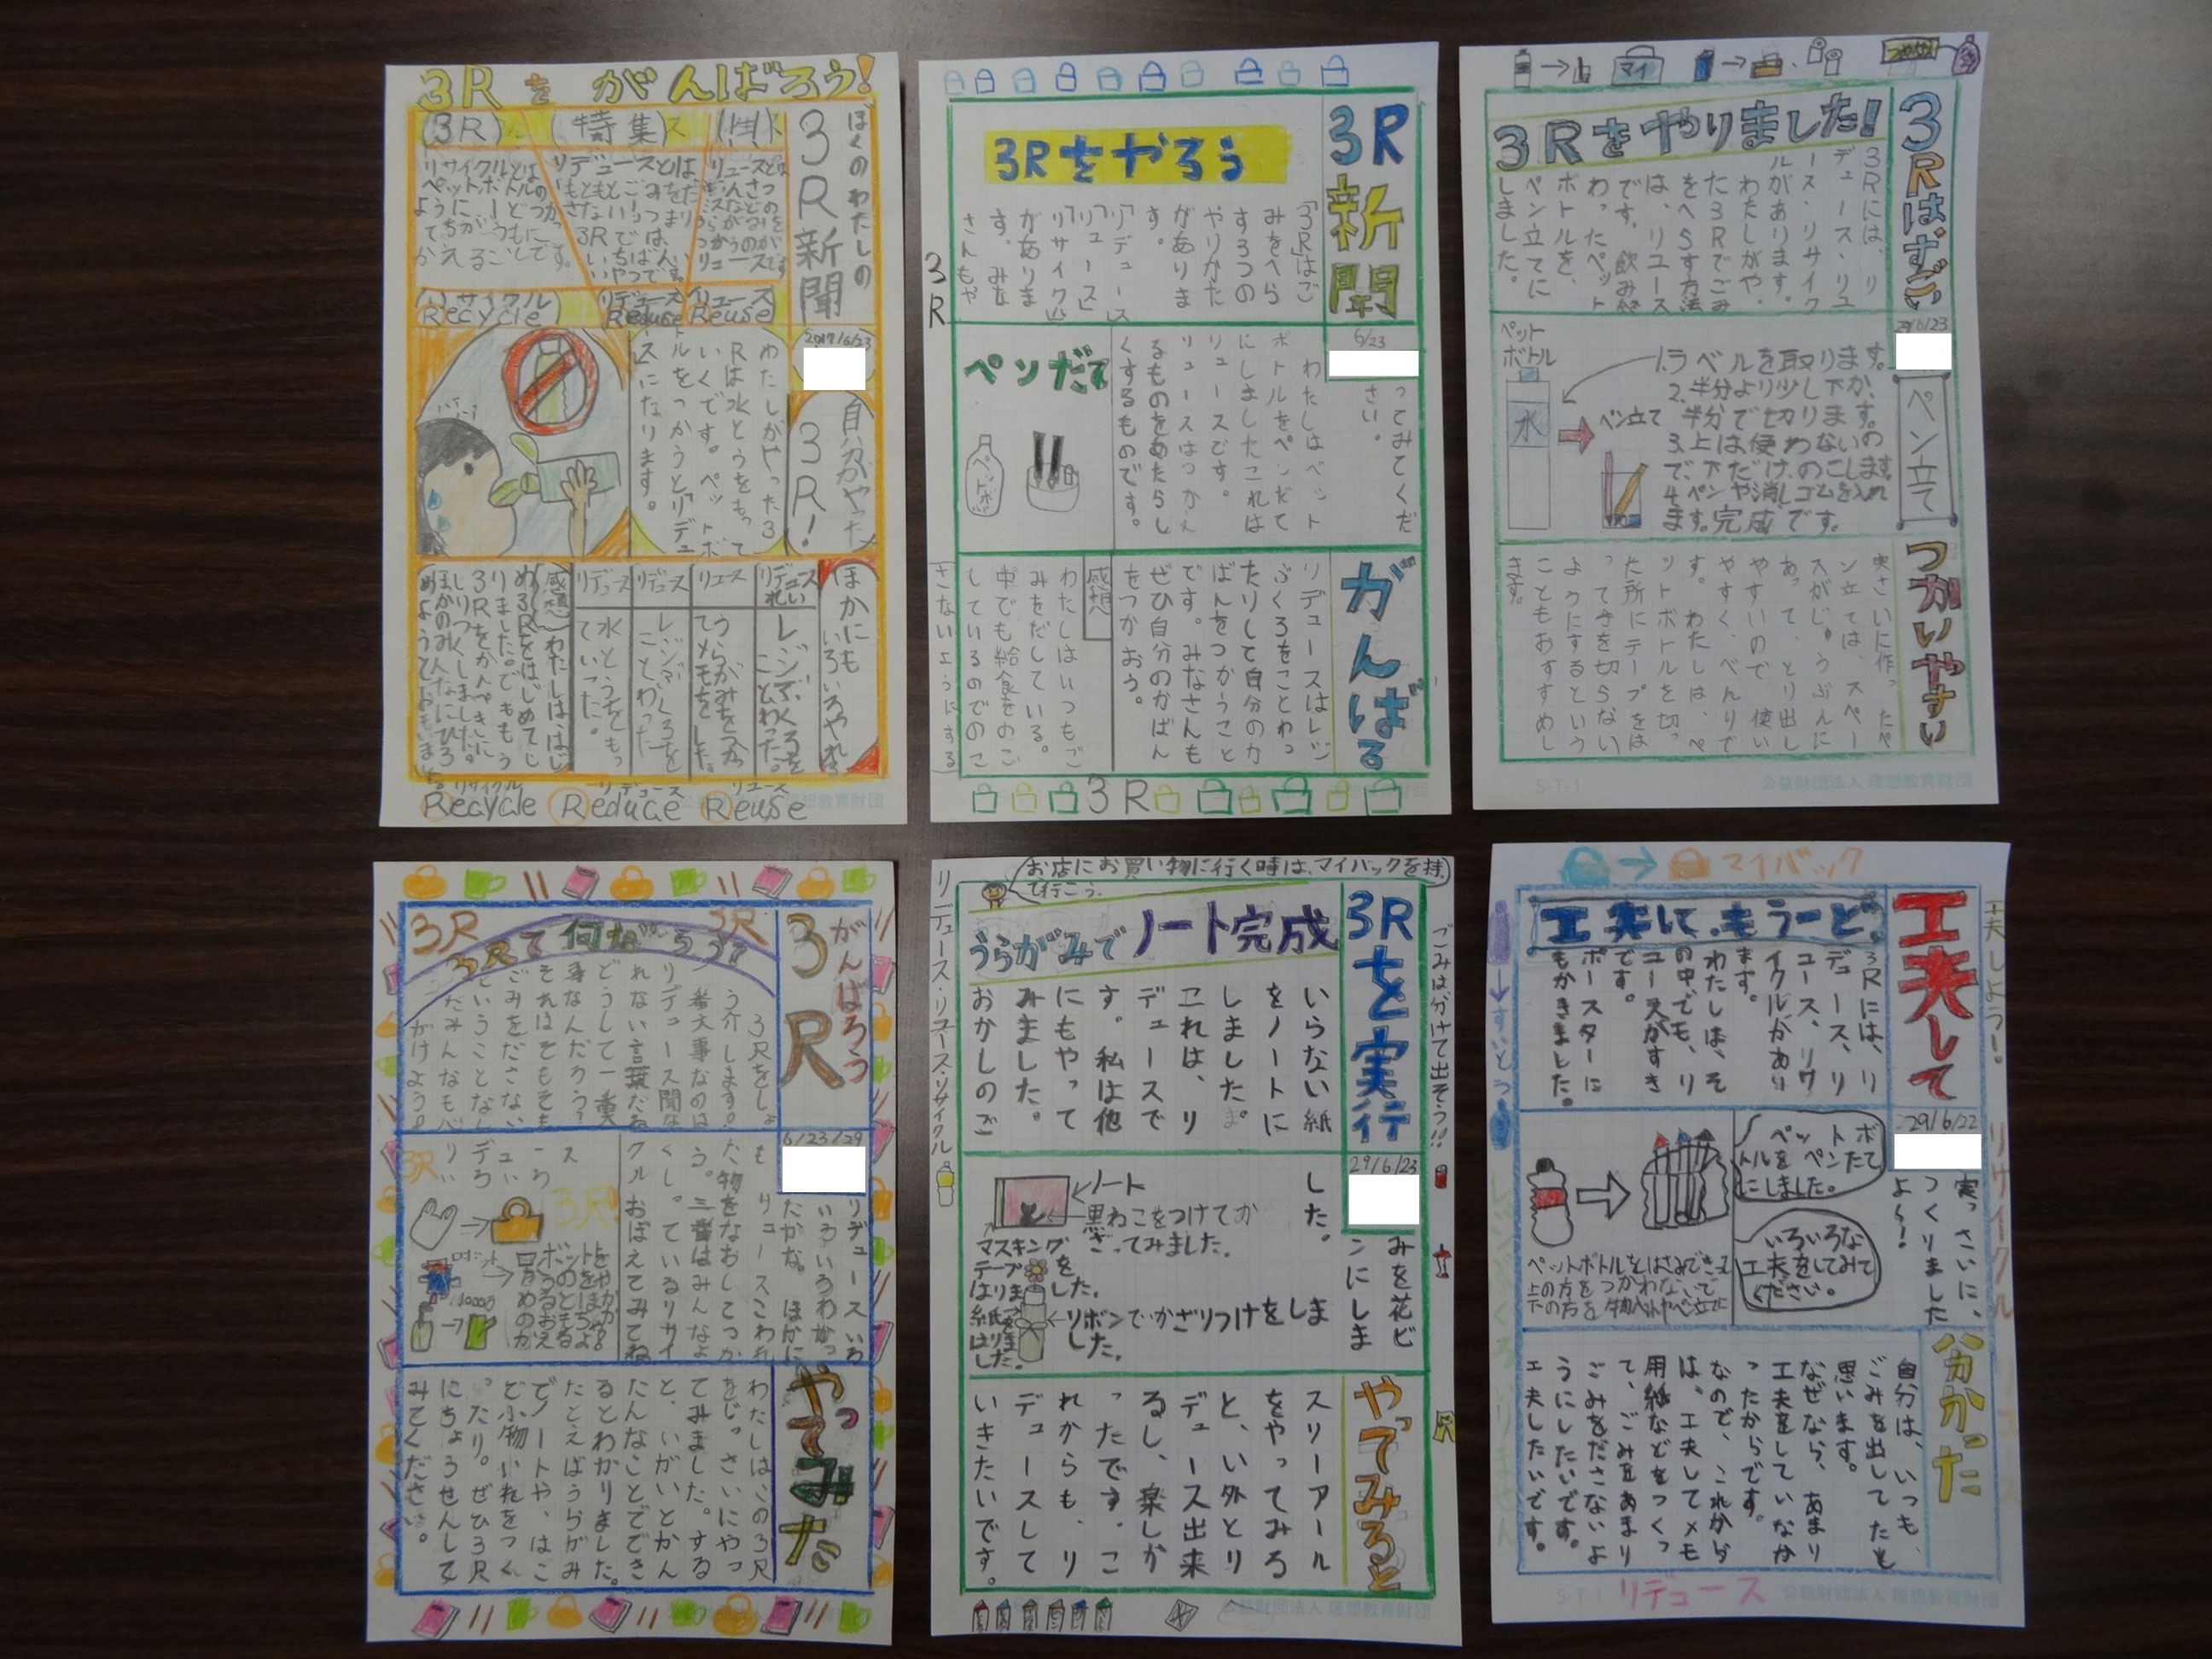 3Rをがんばろう!
ぼくのわたしの
3R新聞
2017/6/23
(3R)
(特集)
リュースとは
リデュースとは
もともとごみをだ
さないつまり
3Rでは、
いちばんい
いやつです。
リサイクルとは
ペットボトルの
ようにーどつかっ
てちがうもにに
かえることです。
リサイクル
Recycle
リデュース
Reduse
リュース
Reuse
自分がやった
3R!
わたしがやった3
Rは水とうをもって
いくです。ペットボ
トルをつかうと「リデュー
ス」になります。
ほかにも
いろいろやれる
リデュース
れい
レジぶくろを
ことわった。
リュース
うらがみをつかっ
てメモをした。
リデュース
レジぶくろを
ことわった
リデュース
水とうをもっ
ていった。
(感想)わたしは、はじ
めは3Rをはじめてし
りました。でももう
3Rをかんぺきに
しりつくしました。
ほかのみんなにひろ
めようとおもいました。
リサイクル
リデュース
リユース
Recycle Reduce Reuse
公益財団法人 理想教育財団
3R新聞
6/23
3Rをやろう
「3R」はご
みをへら
す3つの
やりかた
がありま
す。
「リデュース」
「リュース」
「リサイクル」
がありま
す。みな
さんもや
ってみてくだ
さい。
3R
ペンだて
ペットボ
わたしはペット
ボトルをペンだて
にしましたこれは
リュースです。
リュースはつかえ
るものをあたらし
くするものです。
がんばる
リデュースはレジ
ぶくろをことわっ
たりして自分のカ
ばんをつかうこと
です。みなさんも
ぜひ自分のかばん
をつかおう。
感想
わたしはいつもご
みをだしている。
中でも給食をのこ
しているのでのこ
さないようにする
3R
3Rは、すごい
29/6/23
3Rをやりました!
3Rには、リ
デュース・リユ
ース・リサイク
ルがあります。
わたしがや
った3Rでごみ
をへらす方法
は、リユース
です。飲み終
わったペット
ボトルを、
ペン立てに
しました。
ペン立て
ペット
ボトル
水
ペン立て
1.ラベルを取ります。
2.半分より少し下か、
半分で切ります。
3.上は使わないの
で、下だけ、のこします。
4.ペンや消しゴムを入れ
ます。完成です。
つかいやすい
実さいに作ったペ
ン立ては、スペー
スがじゅうぶんに
あって とり出し
やすいので 使い
やすく、べんりで
す。わたしは、ペ
ットボトルを切っ
た所にテープをは
って手を切らない
ようにするという
こともおすすめし
きます。
S-T-1
公益財団法人 理想教育財団
がんばろう
3R
6/23/29
3R
3Rて何だろう?
3R
3Rをしょ
う介します。
一番大事なのは
リデュース聞な
れない言葉だね
どうして一番大
事なんだろう?
それはそもそも
ごみをださない
ということなん
だみんなも心
がけよう。
リデュースいろ
いろいろわかっ
たかな。ほかに
もリュースこわれ
た物をなおしてつか
う。三番はみんなよ
くし。ているリサイ
クルおぼえてみてね
3R
3R
ロボット
やってみた
わたしは、この3R
をじっさいにやっ
てみました。する
と、いがいとかん
たんなことでき
るとわかりました。
たとえばうらがみ
でノートや、はこ
ど小物いれをつく
ったり。ぜひ3R
にちょうせんして
みてください。
お店にお買い物に行く時は、マイバックを持っ
て行こう。
リデュース・リユース・リサイクル
ごみは分けて出そう!!
3Rを実行
29/6/23
うらがみでノート完成
いらない紙
をノートに
しました。
これは、リ
デュースで
す。私は他
にもやって
みました。
おかしのご
みを花ビ
ンにしま
した。
ノート
黒ねこをつけてか
ざってみました。
マスキング
テープを
はりました。
紙を
はりま
した。
リボンでかざりつけをしま
した。
やってみると
スリーアール
をやってみる
と、い外とリ
デュース出来
るし、楽しか
ったです。こ
れからも、リ
デュースして
いきたいです。
公益財団法人 理想教育財団
マイバック
工夫しよう!
リサイクル
すいとう
工夫して
29/6/22
工夫して、もう一ど
3Rには、リ
デュース、リ
ユース、リサ
イクルがあり
ます。
わたしは、そ
の中でも、リ
ユースがすき
です。
ポースターに
もかきました。
実っさいに、
つくりました
よ~!
ペットボ
トルを ペンたて
にしました。
いろいろな
工夫をしてみて
ください。
ペットボトルをはさみできって
上の方をつかわないで
分かった
自分は、いつも、
ごみを出してたと
思います。
なぜなら、あまり
工夫をしていなか
ったからです。
なので、これから
は、工夫してメモ
用紙などをつくっ
て、ごみをあまり
ごみをださないよ
うにしたいです。
工夫したいです。
S-T-1
リデュース
公益財団法人 理想教育財団